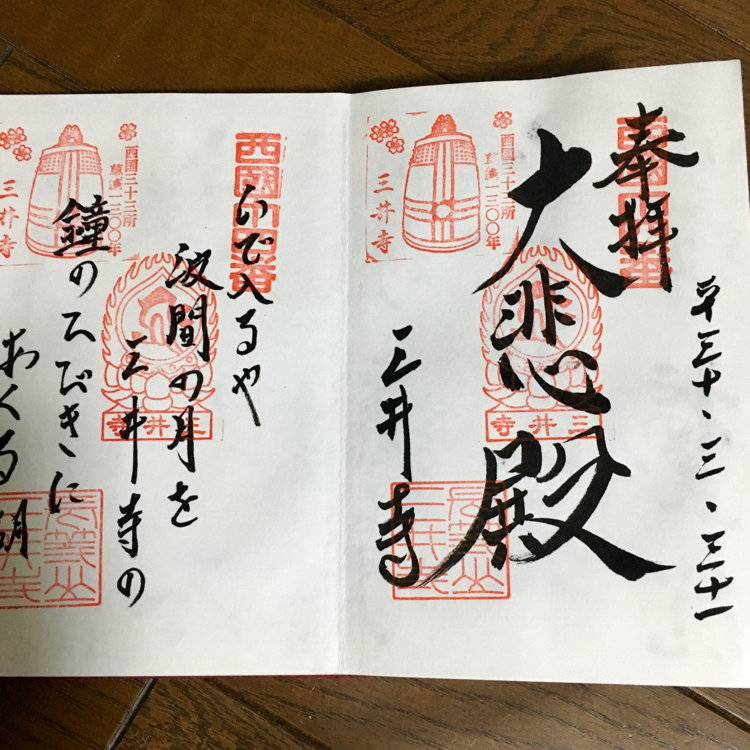 奉拝
大悲殿
三井寺
平三十・三・三十一
西国三十三所
草創一三〇〇年
三井寺
三井寺
西国十四番
いで入るや
波間の月を
三井寺の
鐘のひびきに
あくる湖
西国三十三所
草創一三〇〇年
三井寺
三井寺